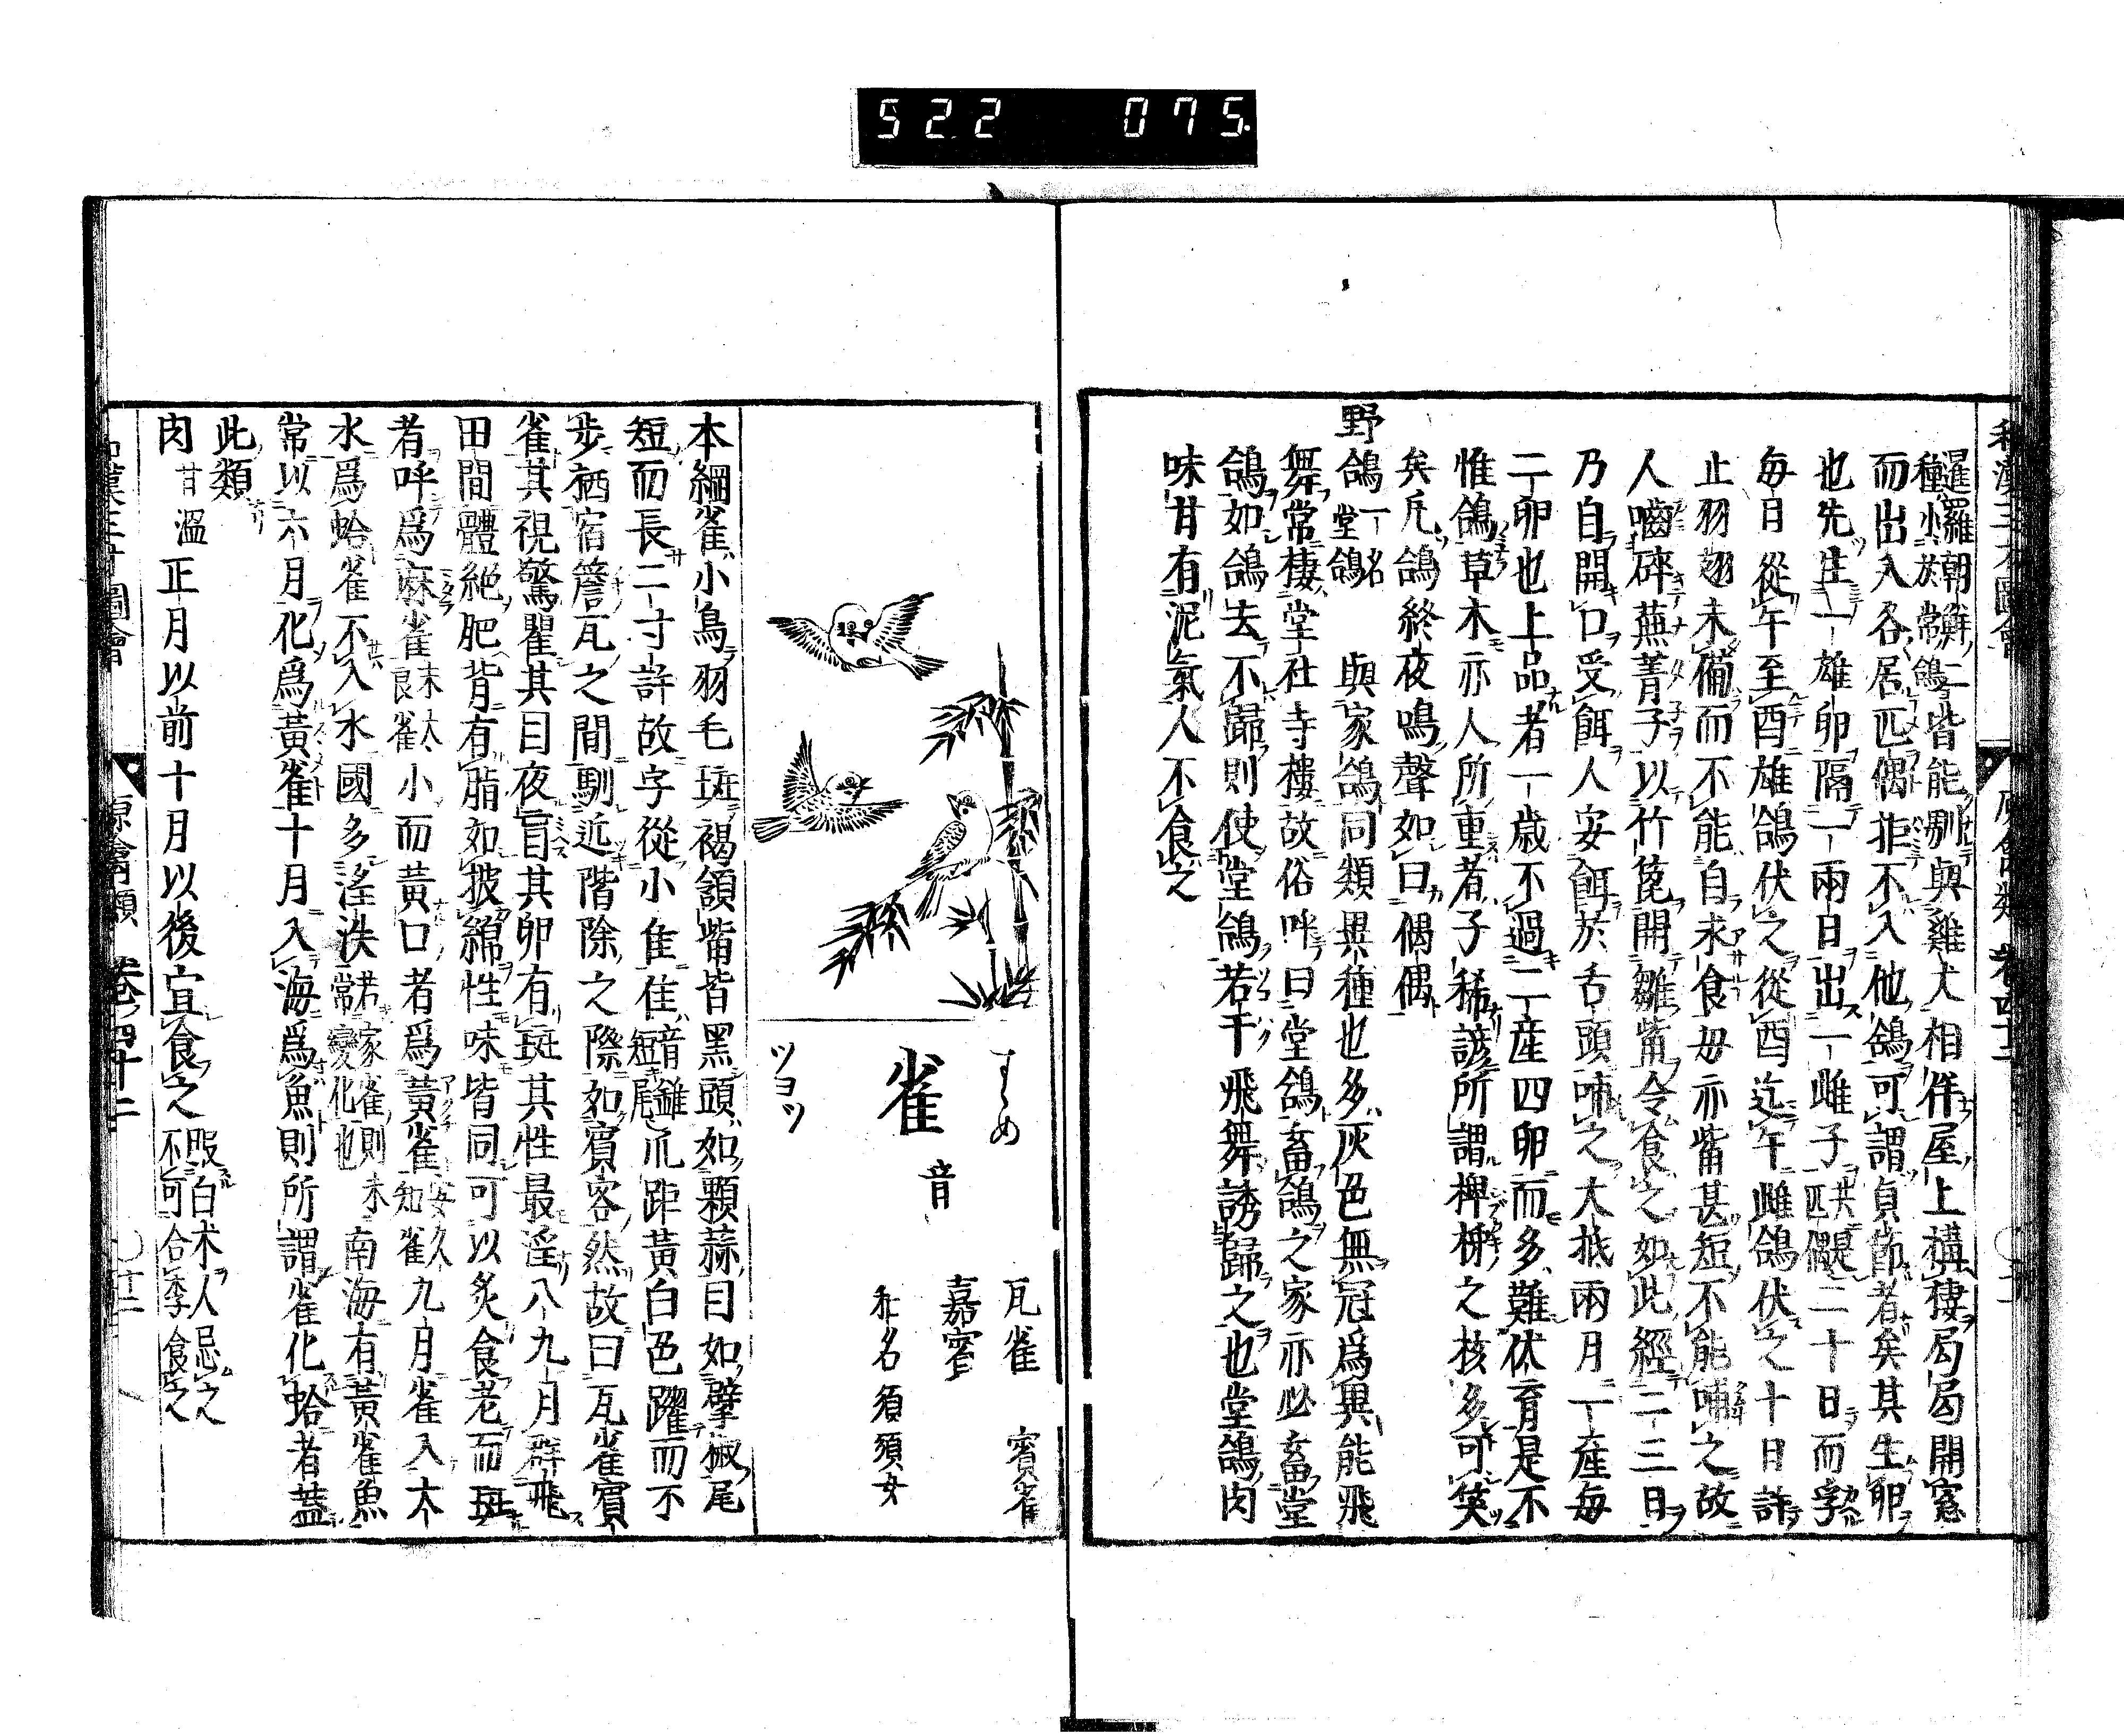 522 075.
和漢三才圖會 原禽類 卷四十二
暹羅朝鮮二
種小於常鴿皆能馴與雞犬相伴屋上構棲局局開窓
而出入各居匹偶非不入他鴿可謂貞節者矣其生卵
也先生一雄卵隔一兩日出一雌子共是匹偶二十日而孚
毎日從午至酉雄鴿伏之從酉迄午雌鴿伏之十日許
止羽翅未備而不能自求食毋亦觜甚短不能哺之故
人嚙碎蕪菁子以竹箆開雛觜令食之如此經二三日
乃自開口受餌人安餌於舌頭哺之大抵兩月一産毎
二卵也上品者一歳不過二産四卵而多難伏育是不
惟鴿草木亦人所重者子稀諺所謂椑柹之核多可笑
矣凡鴿終夜鳴聲如曰偶偶
野鴿一名堂鴿 與家鴿同類異種也多灰色無冠爲異能飛
舞常棲堂社寺樓故俗呼曰堂鴿畜鴿之家亦必畜堂
鴿如鴿去不歸則使堂鴿若干飛舞誘歸之也堂鴿肉
味甘有泥氣人不食之
すゞめ
雀 音
ツヨツ
瓦雀 賓雀
嘉賓
和名須須女
本綱雀小鳥羽毛斑褐頷觜皆黑頭如顆蒜目如擘椒尾
短而長二寸許故字從小隹隹音錐短尾爪距黃白色躍而不
步栖宿簷瓦之間馴近階除之際如賓客然故曰瓦雀賓
雀其視驚瞿其目夜盲其卵有斑其性最淫八九月群飛
田間體絕肥背有脂如披綿性味皆同可以炙食老而斑
者呼爲麻雀末太良雀小而黃口者爲黃雀安久知雀九月雀入大
水爲蛤雀不入水國多淫泆若家雀則未常變化也南海有黃雀魚
常以六月化爲黃雀十月入海爲魚則所謂雀化蛤者蓋
此類
肉 甘溫 正月以前十月以後宜食之 服白朮人忌之不可合李食之
和漢三才圖會 原禽類 卷四十二 〇十二